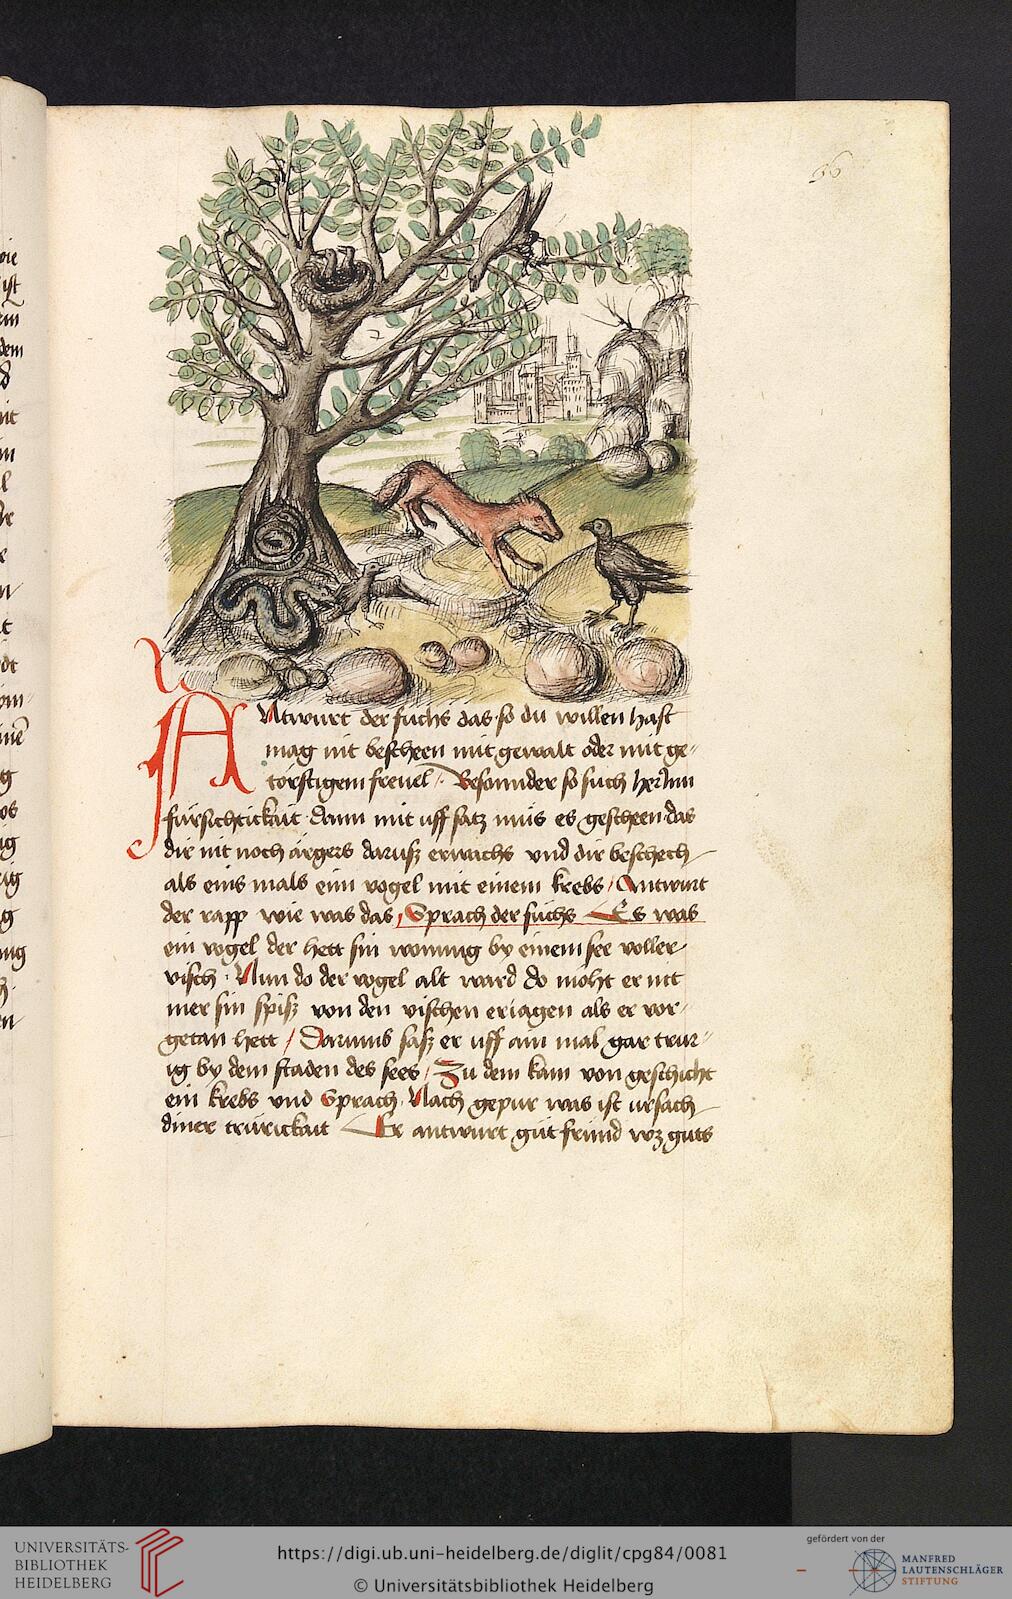 56
ANtwurt der fuchs das so du willen hast
mag nit bescheen mit gewalt oder mit ge-
torstigem freuel / Besonnder so such herinn
fürsichtickait dann mit uff satz mus es gescheen das
dir nit noch ärgers daruß erwachs vnd dir beschech
als eins mals einn vogel mit einem krebs / Antwurt
der rapp wie was das / Sprach der fuchs Es was
ein vogel der hett sin wonung by einem see voller
visch Nun do der vogel alt ward do moht er nit
mer sin spiß von den vischen eriagen als er vor-
getan hett / Darumb saß er uff ain mal gar trur-
ig by dem staden des sees / Zu dem kam von geschicht
ein krebs vnd Sprach Nach gepur was ist ursach
diner trürickait Er antwurt güt fründ wz guts
UNIVERSITÄTS-
BIBLIOTHEK
HEIDELBERG
https://digi.ub.uni-heidelberg.de/diglit/cpg84/0081
© Universitätsbibliothek Heidelberg
gefördert von der
MANFRED
LAUTENSCHLÄGER
STIFTUNG